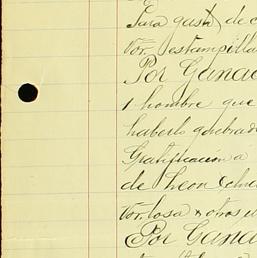 Para gastos de c
Por estampilla
Por Ganad
1 hombre que
haberlo quebrad
Gratificación a
de Leon
Por losa y otros u
Por Ganad